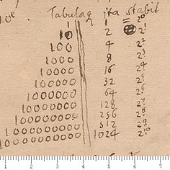 Tabulaq ita stabit
1 = 2⁰
10 2 2¹
100 4 2²
1000 8 2³
10000 16 2⁴
100000 32 2⁵
1000000 64 2⁶
10000000 128 2⁷
100000000 256 2⁸
1000000000 512 2⁹
10000000000 1024 2¹⁰